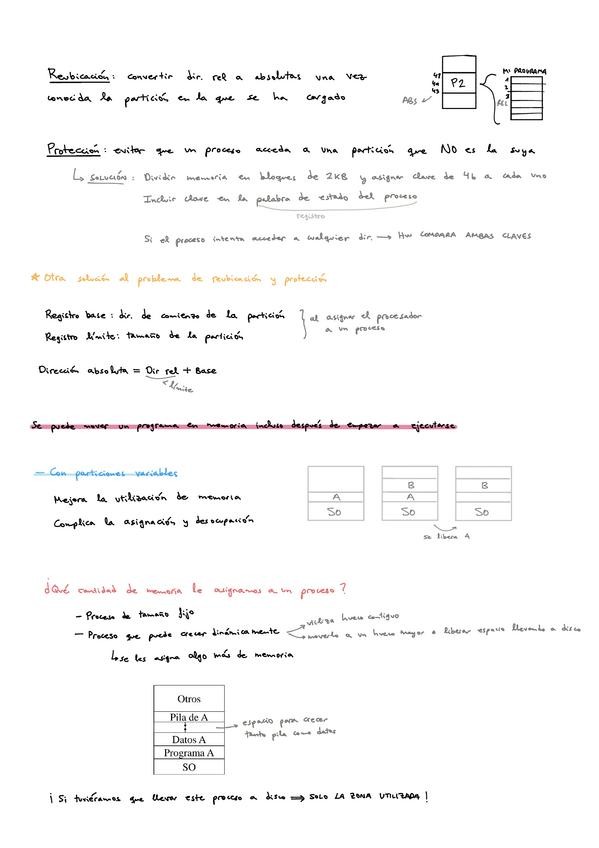 Reubicación: convertir dir. rel a absolutas una vez
conocida la partición en la que se ha cargado
ABS
P2
MI PROGRAMA
1
2
3
REL
Protección: evitar que un proceso acceda a una partición que NO es la suya
↳ SOLUCIÓN: Dividir memoria en bloques de 2KB y asignar clave de 4b a cada uno
Incluir clave en la palabra de estado del proceso
registro
Si el proceso intenta acceder a cualquier dir. → HW COMPARA AMBAS CLAVES
* Otra solución al problema de reubicación y protección
Registro base: dir. de comienzo de la partición
Registro límite: tamaño de la partición
al asignar el procesador
a un proceso
Dirección absoluta = Dir rel + Base
< límite
Se puede mover un programa en memoria incluso después de empezar a ejecutarse
- Con particiones variables
Mejora la utilización de memoria
Complica la asignación y desocupación
A
SO
B
A
SO
B
SO
se libera A
¿Qué cantidad de memoria le asignamos a un proceso?
- Proceso de tamaño fijo
- Proceso que puede crecer dinámicamente
utiliza hueco contiguo
moverlo a un hueco mayor o liberar espacio llevando a disco
↳ se les asigna algo más de memoria
Otros
Pila de A
Datos A
Programa A
SO
espacio para crecer
tanto pila como datos
¡Si tuviéramos que llevar este proceso a disco ⇒ SOLO LA ZONA UTILIZADA!